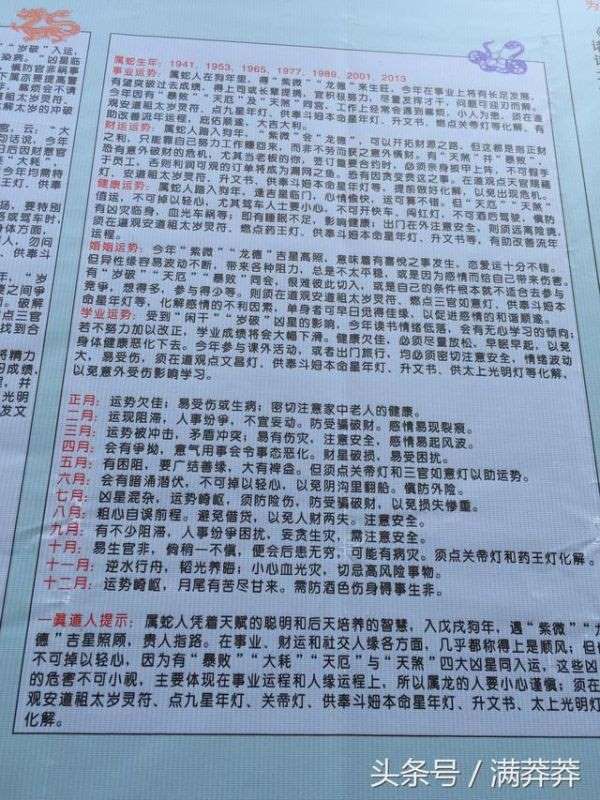 属蛇生年：1941、1953、1965、1977、1989、2001、2013
事业运势：属蛇人在狗年里，得"紫微""龙德"来生旺，今年在事业上将有长足发展，
有望突破过去成绩，得上司或长辈提携，官积纵努力，尽量发挥才干，问题可迎刃而解。
今年因有"暴败""天厄"及"天煞"同宫，工作上经常会遇到幕烦，小人为患，须在道
观安道祖太岁灵符、点九星年灯、供奉斗姆本命星年灯、升文书、燃点关帝灯等化解，有
助改善流年运程，庇佑顺遂，大吉大利。
财运运势：属蛇人踏入狗年，"紫微"会"龙德"，可以开拓财源之路，但这都是指正财
之利，只能靠自己努力工作赚回来，而非不劳而获之意外横财。有"天煞"并"暴败"，
恐有意外破财的危机，尤其当老板的你，签订重要合约时，必须亲身披甲上阵，不可假手
于员工，否则利润可观的订单将成为漏网之鱼。恐有因贪变贫这之事，在道观点天官赐福
灯、安道祖太岁灵符、升文书、供奉斗姆本命星年灯等，提前做好化解，以免出现危机。
健康运势：属蛇人踏入狗年，逢吉星临门，心情愉快，运可算不错，但"天厄""天煞"
值运，不可掉以轻心，尤其驾车人士要小心，不可开快车、闯红灯，不可酒后驾驶，慎防
有凶灾临身，血光车祸等；即有睡眠不足，影响健康；出门在外注意安全，则须远离险境，
须在道观安道祖太岁灵符、燃点药王灯、供奉斗姆本命星年灯、升文书等，有助改善流年
运程。
婚姻运势：今年"紫微""龙德"吉星高照，意味着有喜悦之事发生，恋爱运十分不错。
但异性缘容易波动不断，带来各种阻力，总是不太平稳，或是因为感情而给自己带来伤害。
有"岁破""天厄""暴败"同会，很难彼此切入，或是自己的条件根本就不适合去参与
竞争，想得多，参与得少等。则须在道观安道祖太岁灵符、燃点三官如意灯、供奉斗姆本
命星年灯等，化解感情的不利因素，单身者可早日觅得佳缘，以促进感情的和谐顺遂。
学业运势：受到"闲干""岁破"凶星的影响，今年读书情绪低落，会有无心学习的倾向；
若不努力加以改正，学业成绩将会大幅下滑。健康欠佳，必须尽量放松、早眠早起，以免
身体健康恶化下去。今年参与课外活动，或者出门旅行，均必须密切注意安全，情绪波动
大，易受伤，须在道观点文昌灯、供奉斗姆本命星年灯、升文书、供太上光明灯等化解，
以免意外受伤影响学习。
正月：运势欠佳；易受伤或生病；密切注意家中老人的健康。
二月：运现阻滞，人事纷争，不宜妄动。防受骗破财。感情易现裂痕。
三月：运势被冲击，矛盾冲突；易有伤灾，注意安全。感情易起风波。
四月：会有争拗，意气用事会令事态恶化。财星破损，易受困扰。
五月：有困阻，要广结善缘，大有裨益。但须点关帝灯和三官如意灯以助运势。
六月：会有暗涌潜伏，不可掉以轻心，以免阴沟里翻船。慎防外险。
七月：凶星混杂，运势崎岖，须防险伤，防受骗破财，以免损失惨重。
八月：粗心自误前程。避免借贷，以免人财两失。注意安全。
九月：有不少阻滞，人事纷争困扰，妄贪生灾，需注意安全。
十月：易生官非，倘稍一不慎，便会后患无穷，可能有病灾。须点关帝灯和药王灯化解。
十一月：逆水行舟，韬光养晦；小心血光灾，切忌高风险事物。
十二月：运势崎岖，月尾有苦尽甘来。需防酒色伤身碍事生非。
一真道人提示：属蛇人凭着天赋的聪明和后天培养的智慧，入戊戌狗年，遇"紫微""龙
德"吉星照顾，贵人指路。在事业、财运和社交人缘各方面，几乎都称得上是顺风！但
不可掉以轻心，因为有"暴败""大耗""天厄"与"天煞"四大凶星同入运，这些凶
的危害不可小视，主要体现在事业运程和人缘运程上，所以属龙的人要小心谨慎；须在
观安道祖太岁灵符、点九星年灯、关帝灯、供奉斗姆本命星年灯、升文书、太上光明灯
化解。
头条号 / 满莽莽